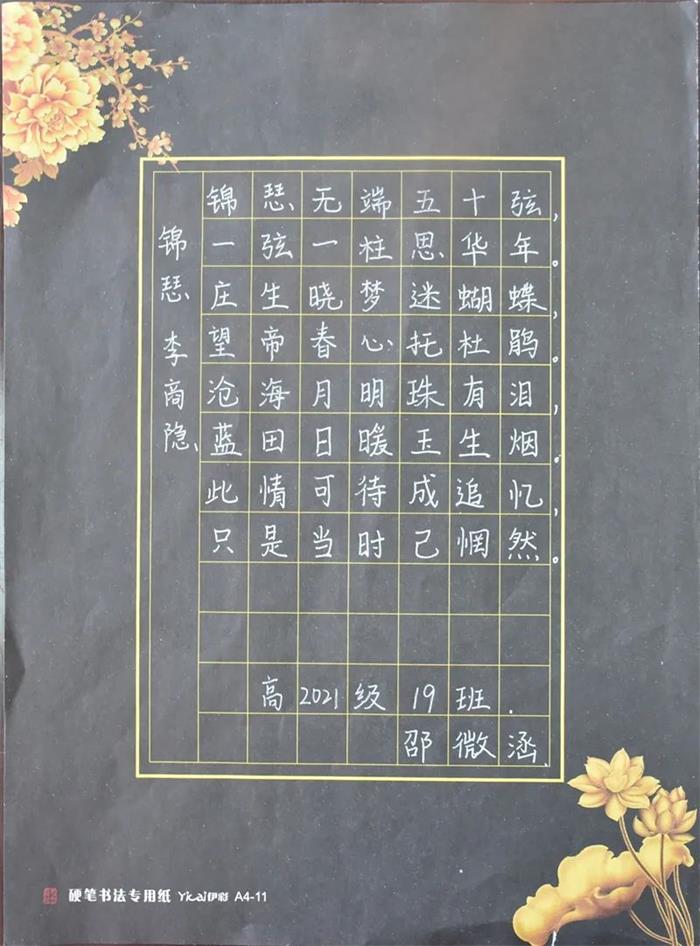 锦瑟 李商隐
锦瑟无端五十弦,
一弦一柱思华年。
庄生晓梦迷蝴蝶,
望帝春心托杜鹃。
沧海月明珠有泪,
蓝田日暖玉生烟。
此情可待成追忆,
只是当时己惘然。
高2021级19班.
邵微涵
硬笔书法专用纸 Yicai伊彩 A4-11